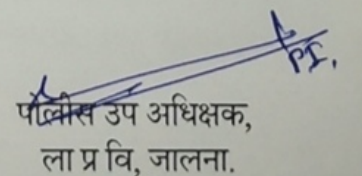 PI,
पोलीस उप अधिक्षक,
ला प्र वि, जालना.